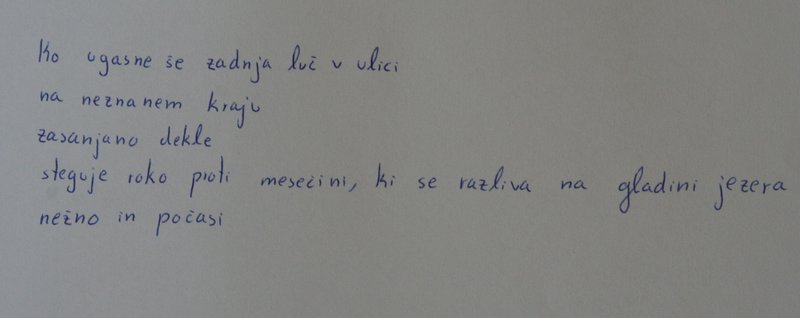 Ko ugasne še zadnja luč v ulici
na neznanem kraju
zasanjano dekle
steguje roko proti mesečini, ki se razliva na gladini jezera
nežno in počasi